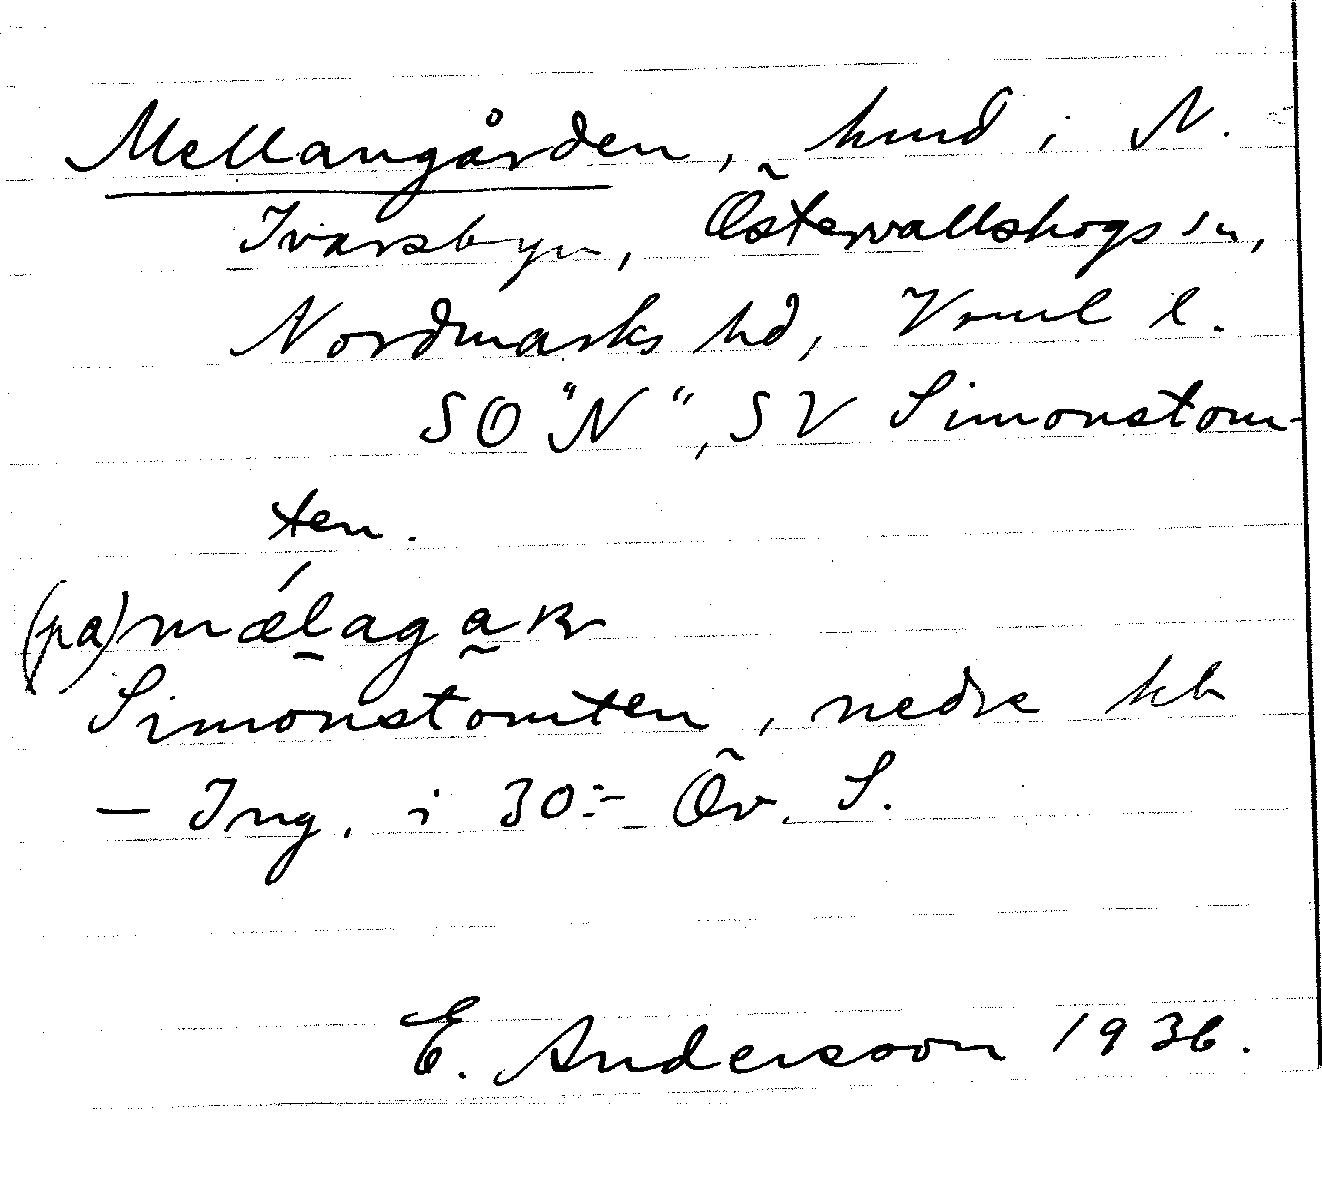 Mellangården, hmd i N.
Ivarsbyn, Östervallskogs sn,
Nordmarks hd, Vrml l.
SO "N", SV Simonstom-
ten.
(pa) mǽlagaɳ
Simonstomten, nedre kb
— Ing. i 30:- Öv. S.
E. Andersson 1936.